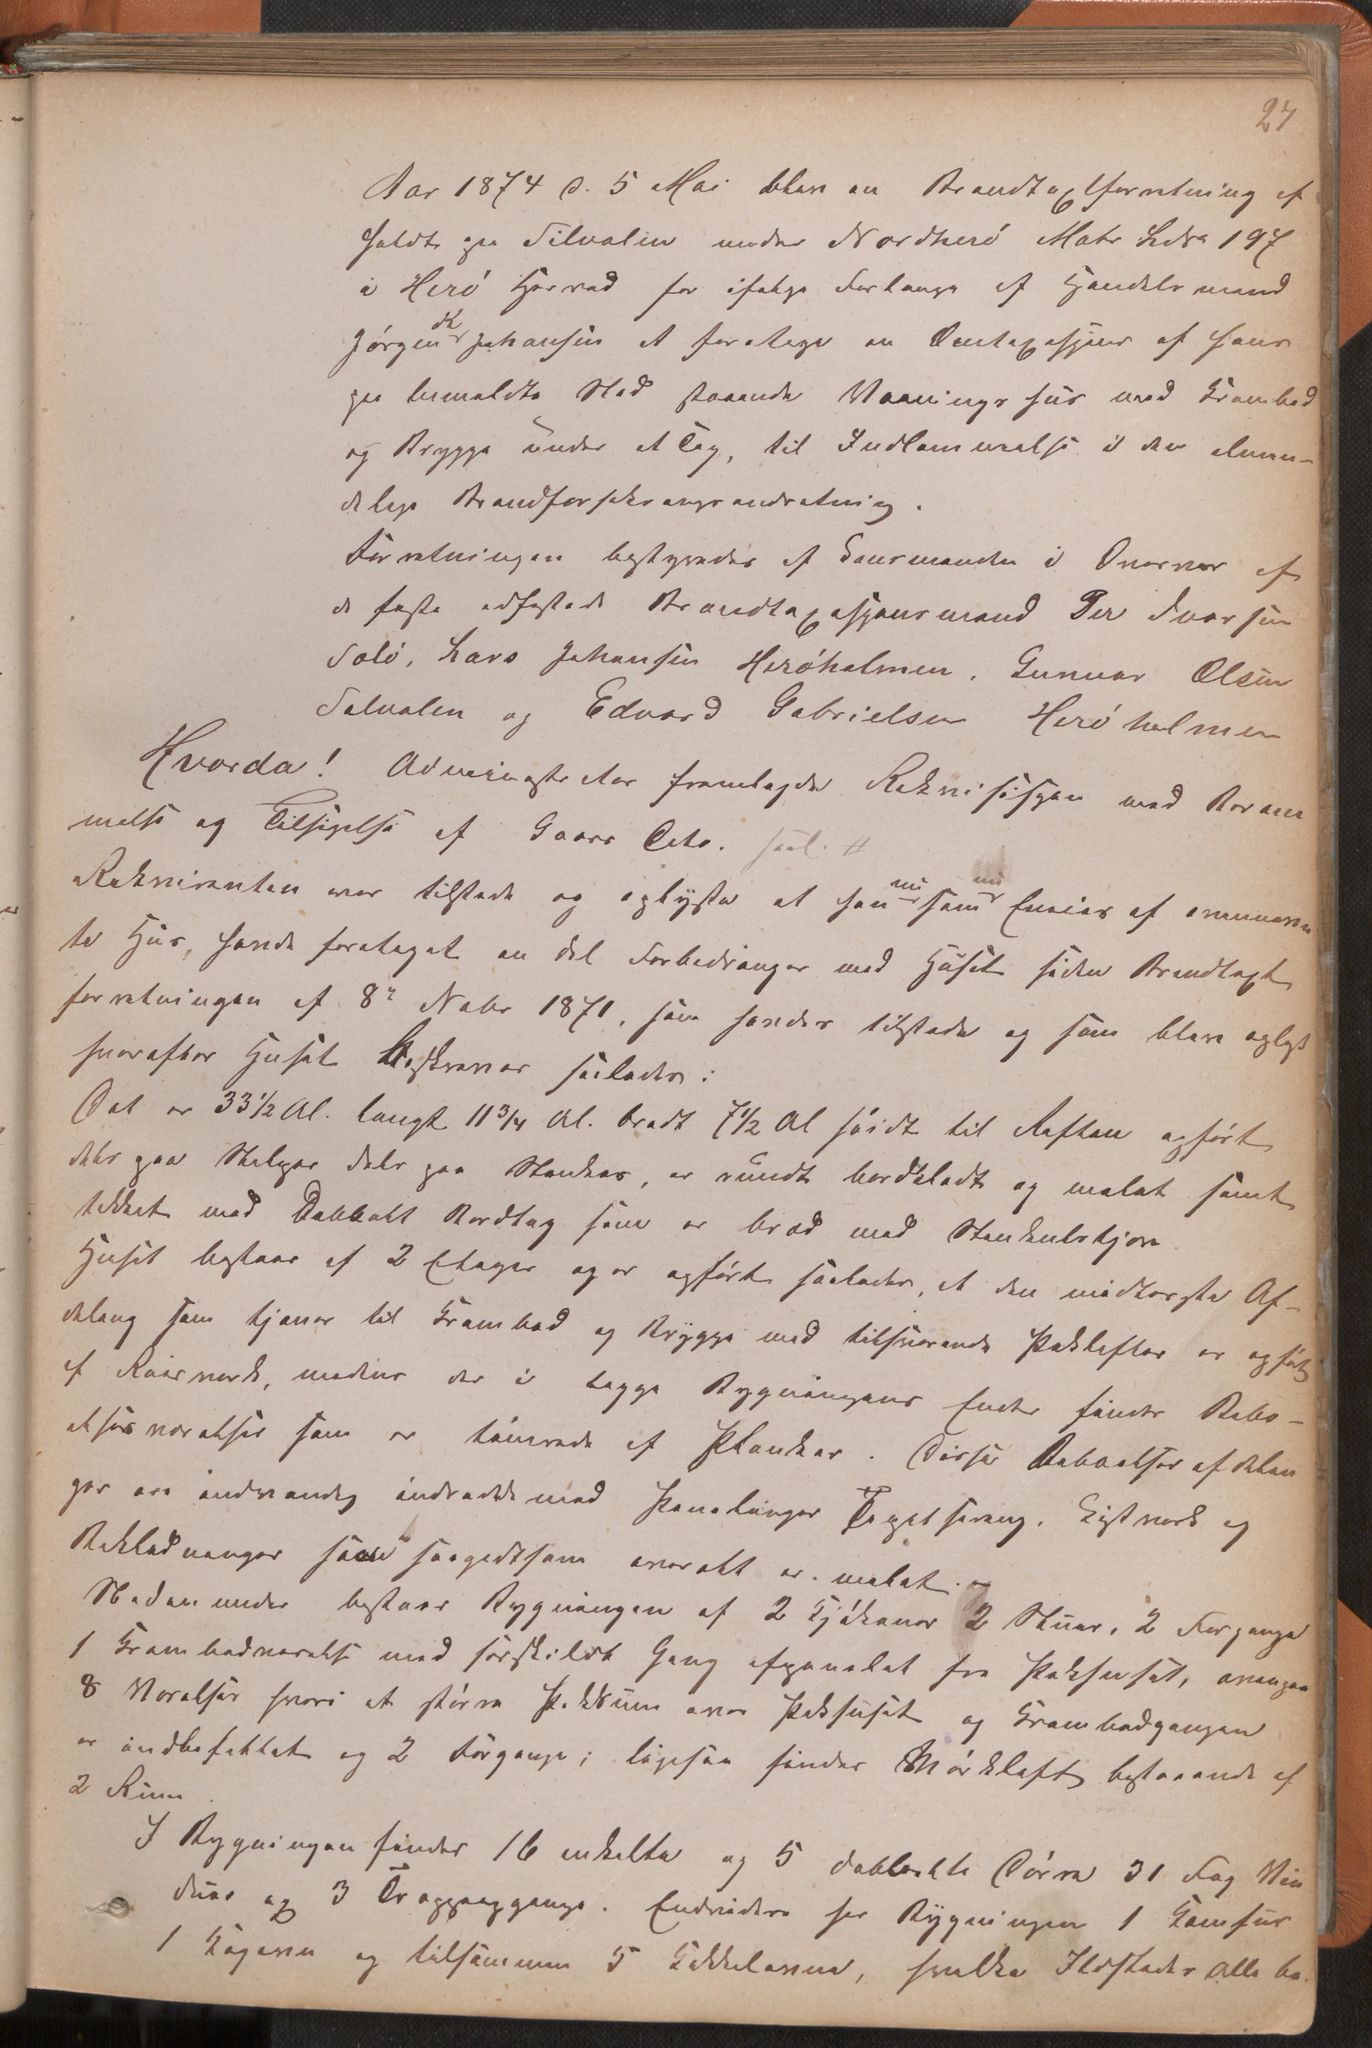 27
Aar 1874 d. 5 Mai blev en Brandtaxtforretning af
holdt paa Silvalen under Nordherø Matr Lødnr 197
i Herø Herred for ifølge Forlangende af Handelsmand
Jørgen Johansen at foretage en Omtaxasjon af hans
paa bemeldte Sted staaende Vaaningshus med Krambod
og Brygge under et Tag, til Indlemmelse i den almin-
delige Brandforsikrangsindretning.
Forretningen bestyredes af Lensmanden i Overvær af
de faste edfæstede Brandtaxasjonsmænd Per Ivarsen
Salø, Lars Johansen Herøholmen, Gunnar Olsen
Salvalen og Edvard Gabrielsen Herøholmen
Hvorda! Administrator fremlagde Rekvisisjon med Beram
melse og Tilsigelse af Gaars Dato.
Rekvirenten var tilstede og oplyste at han nu som Eneeier af ovennævn
te Hus, havde foretaget en del Forbedringer med Huset siden Brandtaxt
forretningen af 8de Novbr 1871, som fandes tilstede og som blev oplyst
hvorefter Huset Beskrives saaledes:
Det er 33½ Al. langt 11¾ Al. bredt 7½ Al høidt til Raften opført
dels paa Stolper dels paa Stenkar, er rundt bordklædt og malet samt
tekket med Dobbelt Bordtag som er bræd med Stenkulstjære
Huset bestaar af 2 Etager og er opført saaledes, at den midterste Af-
deling som tjener til Krambod og Brygge med tilsvarende Paklofter er opført
af Reisverk, medens der i begge Bygningens Ender findes Bebo-
elsesværelser som er tømrede af Planker. Disse Beboelsesafdelin
ger ere indvendig indredede med Panelinger Tapetsering, Listverk og
Bekledninger saavel saagodtsom overalt er malet.
Nedenunder bestaar Bygningen af 2 Kjøkener 2 Stuer, 2 Forgange
1 Kramboværelse med særskildt Gang afpanelet fra Pakhuset, ovenpaa
8 Værelser hvori et større Pakrum over Pakhuset og Krambodgangen
er indbefattet og 2 Forgange; ligesaa findes Mørkloft bestaaende af
2 Rum.
I Bygningen findes 16 enkelte og 5 dobbelte Døre 31 Fag Vin
duer og 3 Trappeopgange. Endvidere har Bygningen 1 Komfur
1 Bagerovn og tilsammen 5 Kakkelovne, hvilke Ildsteder alle be-